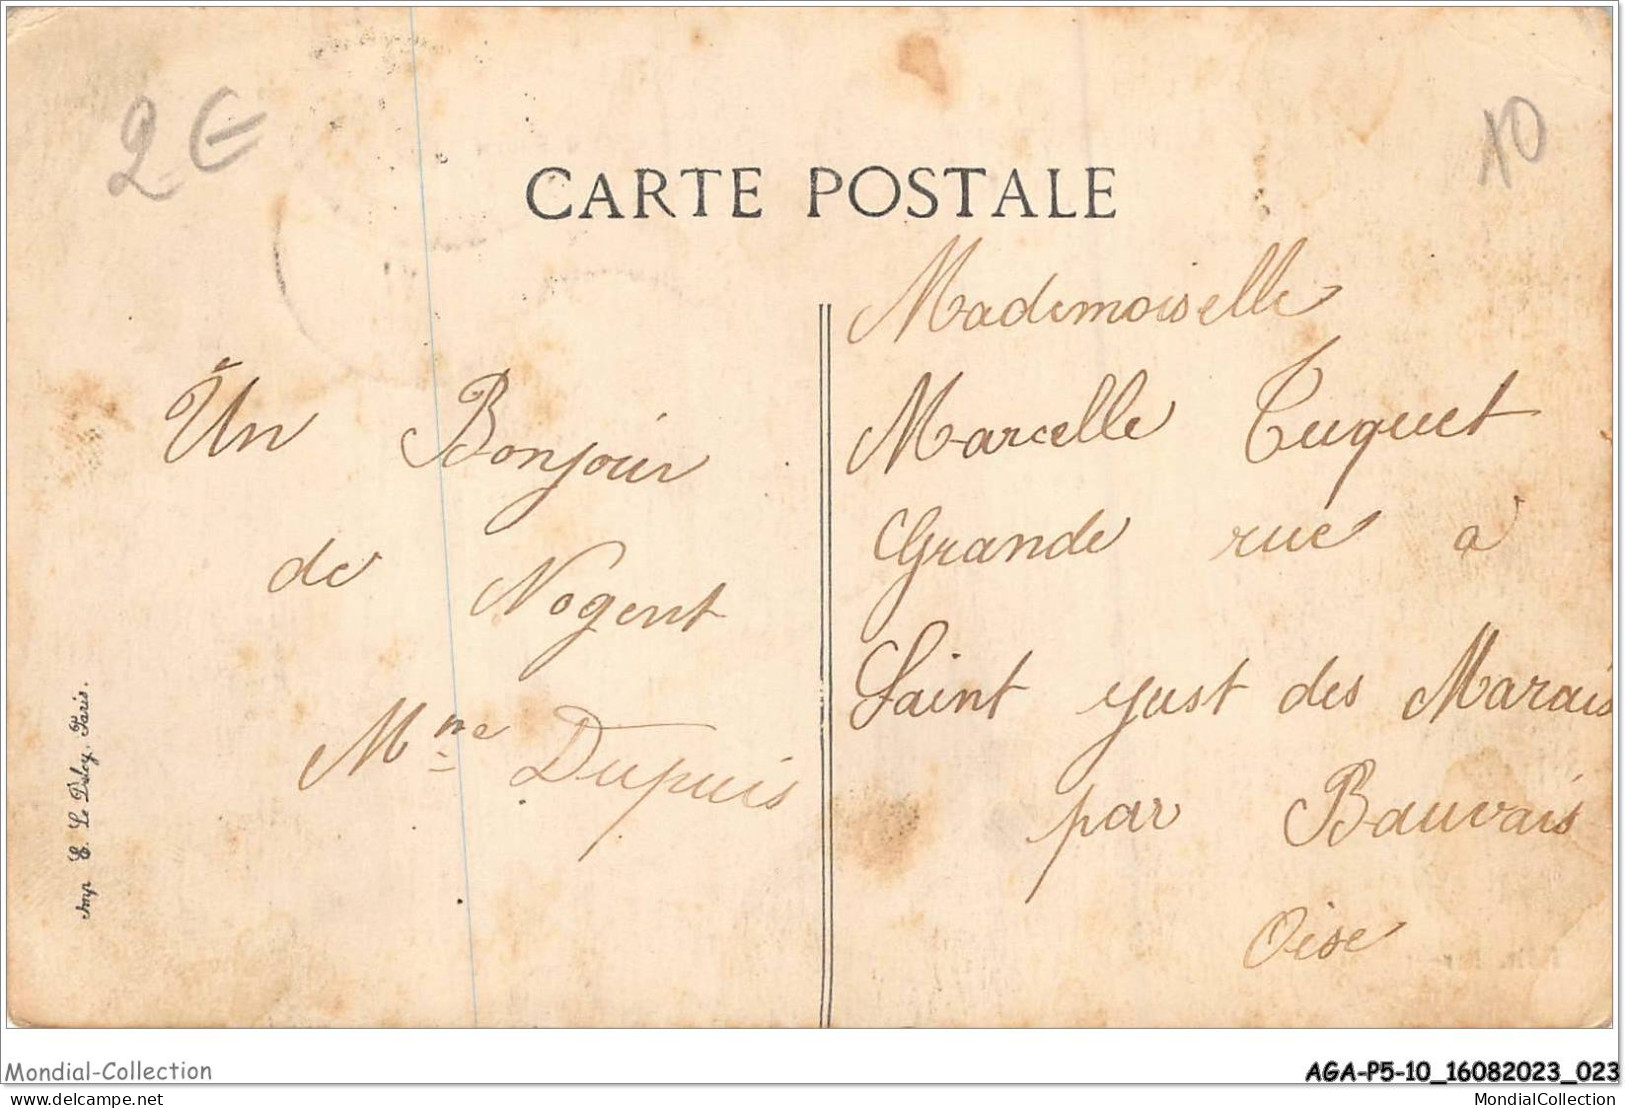 2€
10
CARTE POSTALE
Un Bonjour
de Nogent
Mme Dupuis
Mademoiselle
Marcelle Tuquet
Grande rue a
Saint yust des Marais
par Bauvais
Oise
Imp. E. Le Deley, Paris.
Mondial-Collection
AGA-P5-10_16082023_023
delcampe.net
MondialCollection